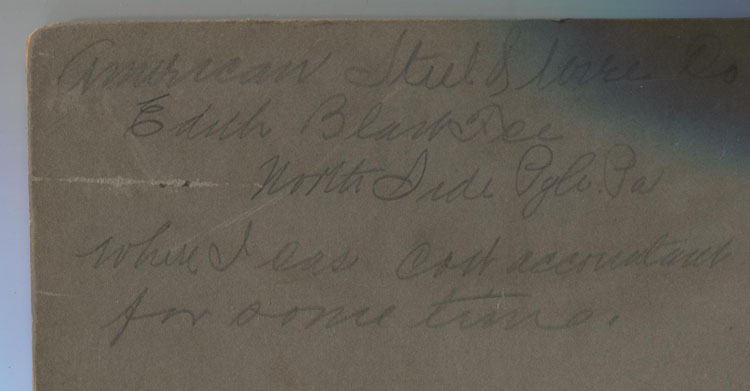 American Steel & Wire Co
Edith Blast Fce
North Side Pgh. Pa
where I was Cost accountant
for some time.